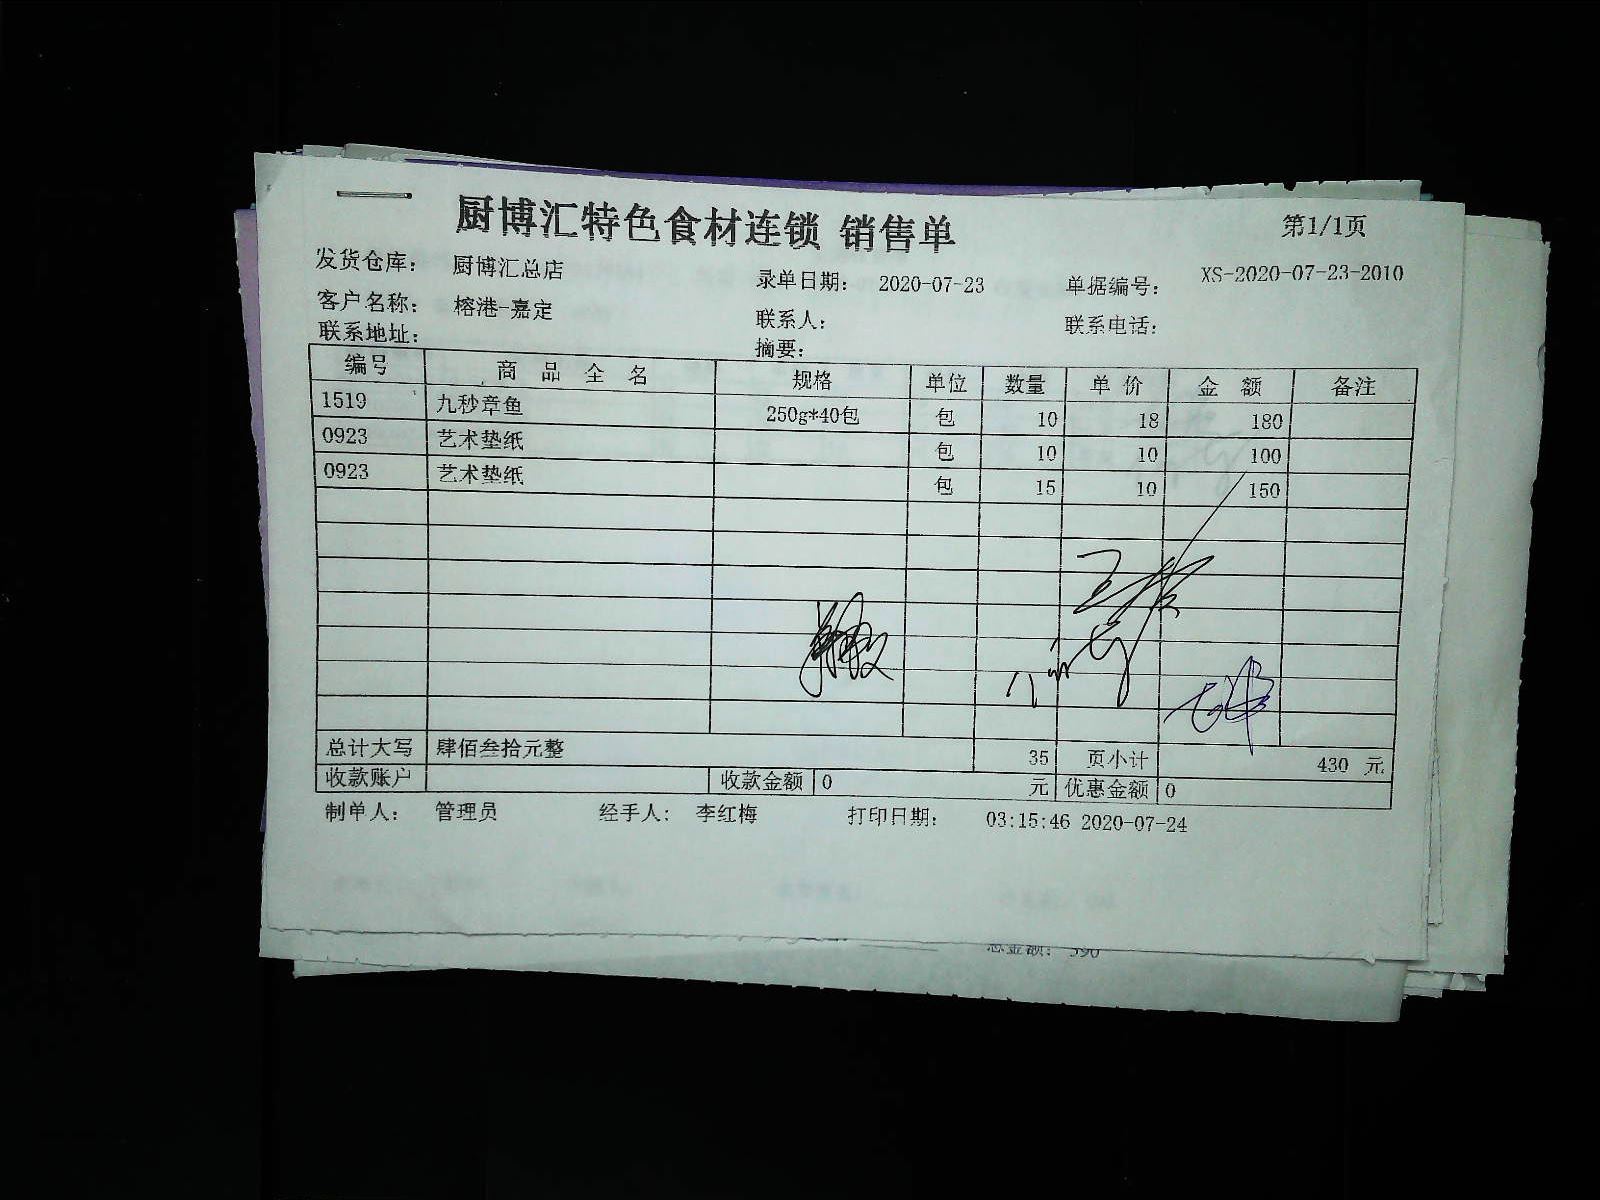 厨博汇特色食材连锁 销售单 第1/1页
发货仓库: 厨博汇总店 录单日期: 2020-07-23 单据编号: XS-2020-07-23-2010
客户名称: 榕港-嘉定 联系人: 联系电话:
联系地址: 摘要:
编号 商品全名 规格 单位 数量 单价 金额 备注
1519 九秒章鱼 250g*40包 包 10 18 180
0923 艺术垫纸 包 10 10 100
0923 艺术垫纸 包 15 10 150
总计大写 肆佰叁拾元整 35 页小计 430 元
收款账户 收款金额 0 元 优惠金额 0
制单人: 管理员 经手人: 李红梅 打印日期: 03:15:46 2020-07-24
总金额: 390